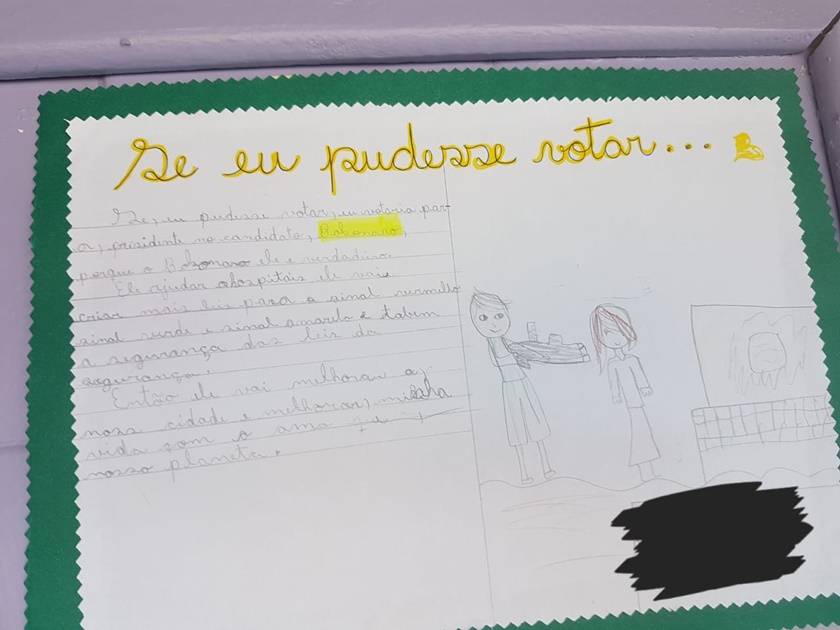 Se eu pudesse votar...
Se, eu pudesse votar, eu votaria par-
a, presidente no candidato, Bolsonaro,
porque o Bolsonaro ele e verdadeiro.
Ele ajudar a hospitais ele vai
criar mais leis para o sinal vermelho
sinal verde e sinal amarelo e tabem
a segurança das leis da
segurança.
Então ele vai melhorar a,
nossa cidade e melhorar, minha
vida com o
nosso planeta.